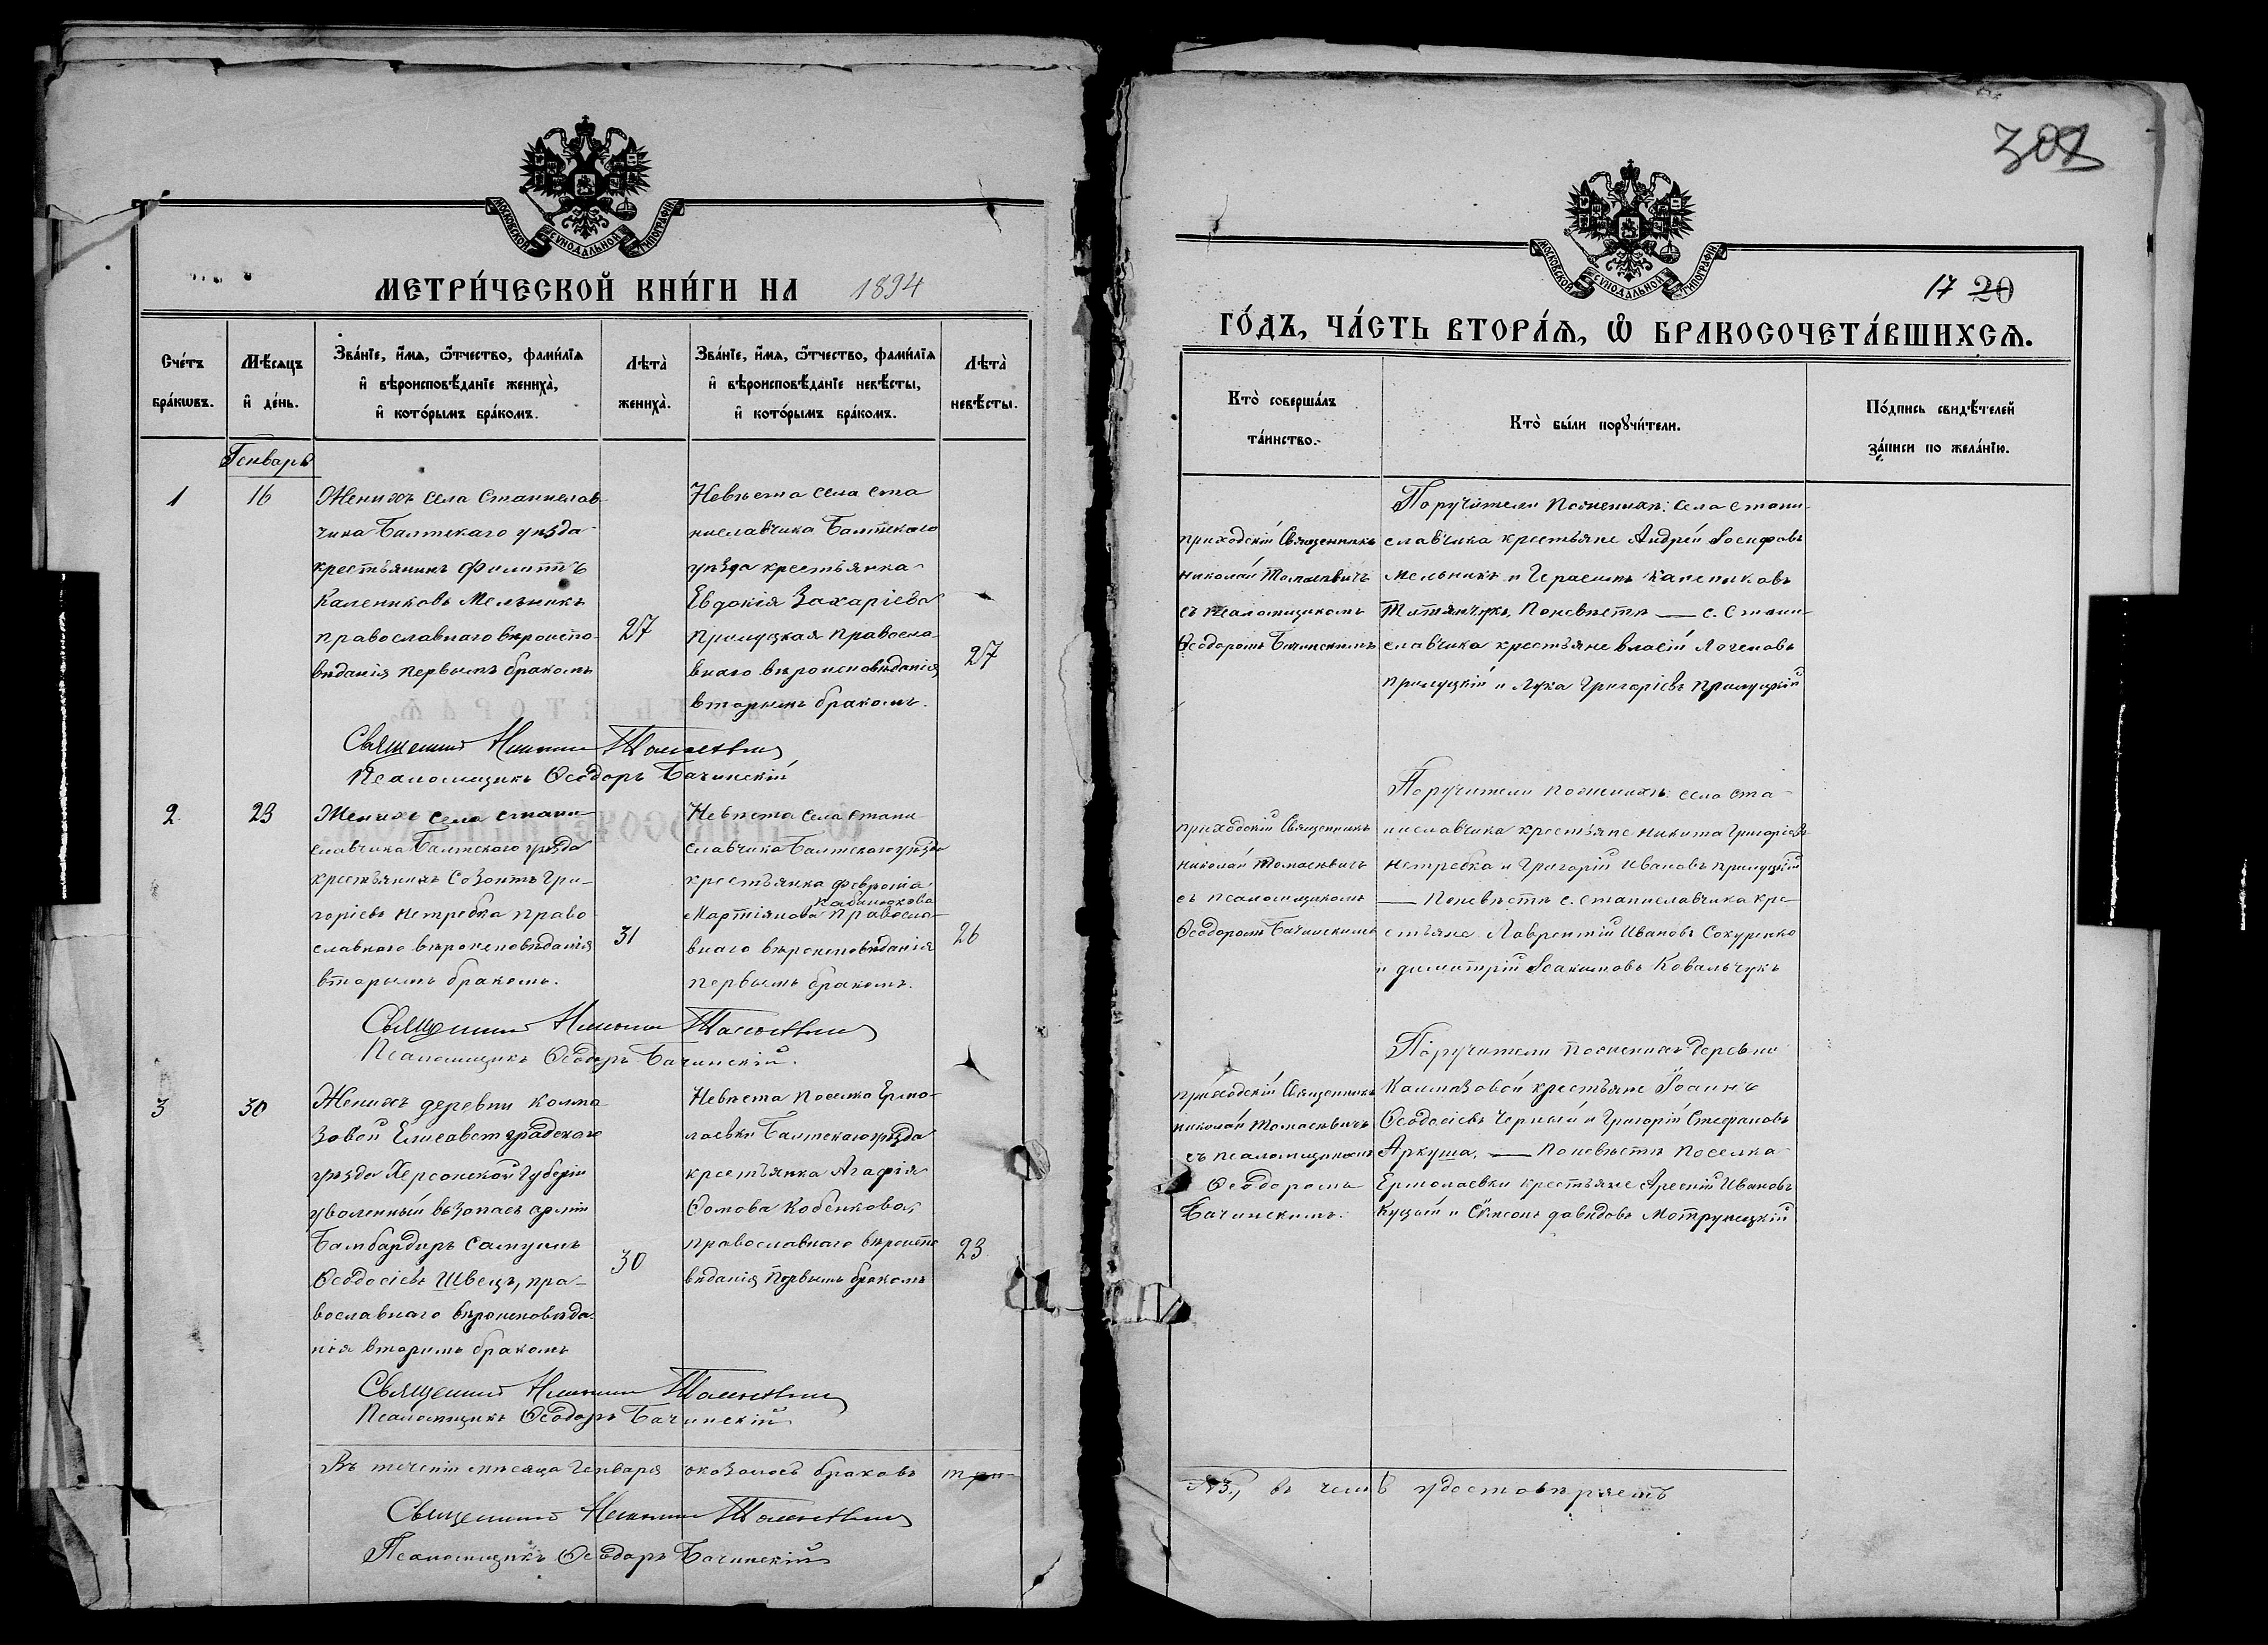 МОСКОВСКОЙ СУНОДАЛЬНОЙ ТИПОГРАФІИ
МЕТРИ́ЧЕСКОЙ КНИ́ГИ НА 1894
Сче́тъ бра́кѡвъ.
Мѣ́сяцъ и҆ де́нь.
Зва́нїе, и҆́мѧ, ѻ҆́тчество, фами́лїѧ и҆ вѣроисповѣ́данїе жениха̀, и҆ кото́рымъ бра́комъ.
Лѣта̀ жениха̀.
Зва́нїе, и҆́мѧ, ѻ҆́тчество, фами́лїѧ и҆ вѣроисповѣ́данїе невѣ́сты, и҆ кото́рымъ бра́комъ.
Лѣта̀ невѣ́сты.
Генварь
1
16
Женихъ села Станислав-
чика Балтскаго уѣзда
крестьянинъ Филиппъ
Калениковъ Мельникъ
православнаго вѣроиспо-
вѣданія первымъ бракомъ
27
Невѣста села Ста
ниславчика Балтскаго
уѣзда крестьянка
Евдокія Захаріева
Прилуцкая правосла-
внаго вѣроисповѣданія
вторымъ бракомъ.
27
Священникъ Николай Томасевичъ
Псаломщикъ Ѳеодоръ Бачинскій
2
23
Женихъ села Стани-
славчика Балтскаго уѣзда
крестьянинъ Созонтъ Гри-
горіевъ Нетребка право
славнаго вѣроисповѣданія
вторымъ бракомъ.
31
Невѣста села Стани
славчика Балтскаго уѣзда
крестьянка Февронія
Мартіянова правосла-
внаго вѣроисповѣданія
первымъ бракомъ.
26
Священникъ Николай Томасевичъ
Псаломщикъ Ѳеодоръ Бачинскій.
3
30
Женихъ деревни Колма
зовой Елисаветградскаго
уѣзда Херсонской Губерніи
уволенный въ запасъ арміи
Бамбардиръ Самуилъ
Ѳеодосіевъ Швецъ, пра-
вославнаго вѣроисповѣда-
нія вторымъ бракомъ
30
Невѣста Поселка Ермо-
лаевки Балтскаго уѣзда
крестьянка Агафія
Ѳомова Кобенкова,
православнаго вѣроиспо
вѣданія первымъ бракомъ
23
Священникъ Николай Томасевичъ
Псаломщикъ Ѳеодоръ Бачинскій
Въ теченіи мѣсяца Генваря оказалось браковъ три
Священникъ Николай Томасевичъ
Псаломщикъ Ѳеодоръ Бачинскій
МОСКОВСКОЙ СУНОДАЛЬНОЙ ТИПОГРАФІИ
17 20
ГО́ДЪ, ЧА́СТЬ ВТОРА́Ѧ, Ѡ҆ БРАКОСОЧЕТА́ВШИХСѦ.
Кто̀ соверша́лъ та́инство.
Кто̀ бы́ли порꙋчи́тели.
По́дпись свидѣ́телей за́писи по жела́нїю.
приходскій Священникъ
Николай Томасевичъ
съ псаломщикомъ
Ѳеодоромъ Бачинскимъ
Поручители по женихѣ: села Стани-
славчика крестьяне Андрей Іосифовъ
Мельникъ и Герасимъ Калениковъ
По невѣстѣ — с. Стани-
славчика крестьяне Власій
Прилуцкій и Лука Григоріевъ Прилуцкій
приходскій Священникъ
Николай Томасевичъ
съ псаломщикомъ
Ѳеодоромъ Бачинскимъ
Поручители по женихѣ: села Ста-
ниславчика крестьяне Никита Григоріевъ
Нетребка и Григорій Ивановъ Прилуцкій
— По невѣстѣ с. Станиславчика кре-
стьяне Лаврентій Ивановъ Сокуренко
и Димитрій Іоакимовъ Ковальчукъ
приходскій Священникъ
Николай Томасевичъ
съ псаломщикомъ
Ѳеодоромъ
Бачинскимъ.
Поручители по женихѣ деревни
Калмазовой крестьяне Іоаннъ
Ѳеодосіевъ Черный и Григорій Стефановъ
Аркуша, — По невѣстѣ Поселка
Ермолаевки крестьяне Арсеній Ивановъ
Куцый и Сѵмеонъ Давидовъ Мотрунецкій
№ 3, въ чемъ удостовѣряетъ